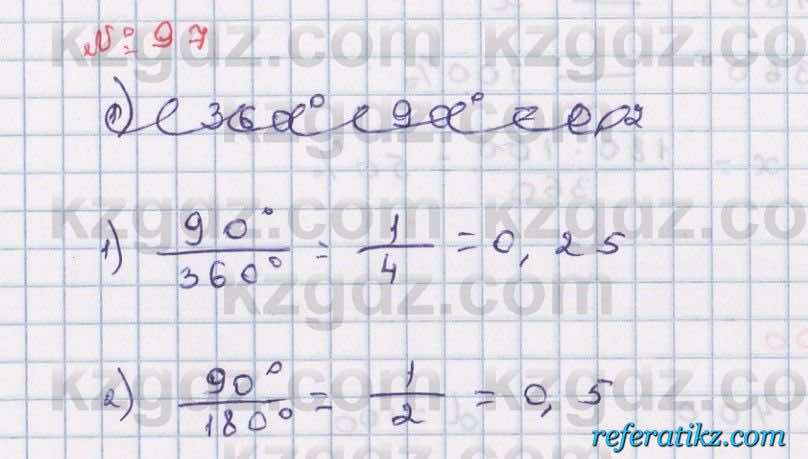 № 97
kzgdz.com
1) 90°/360° = 1/4 = 0,25
kzgdz.com
2) 90°/180° = 1/2 = 0,5
referatikz.com